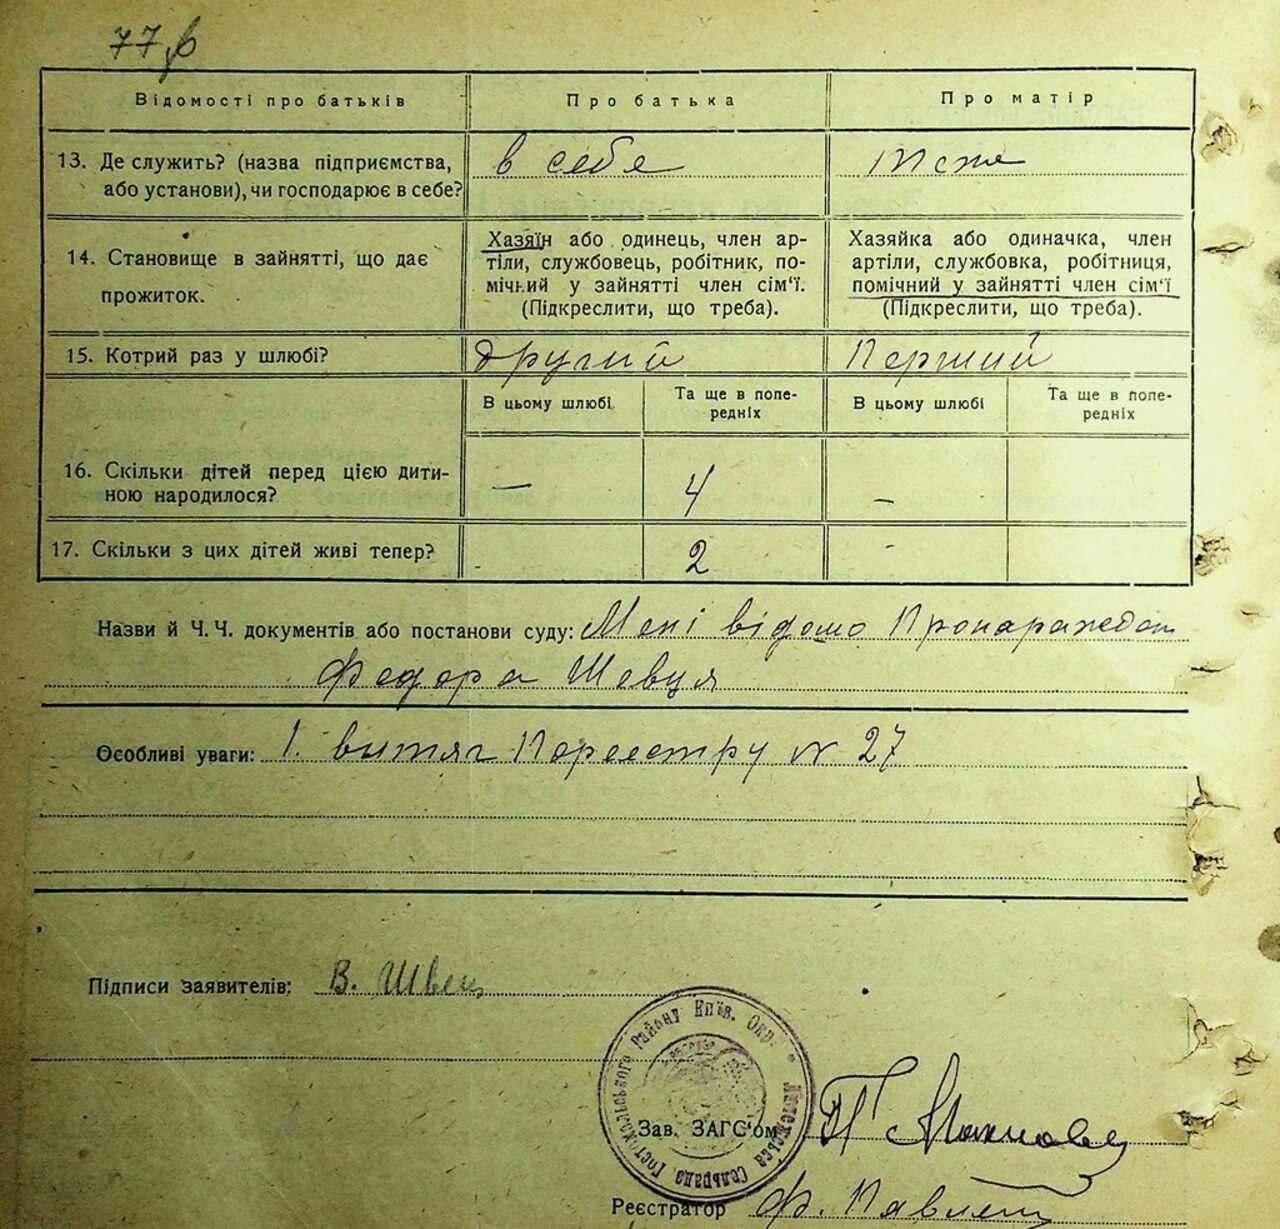 77
Відомості про батьків
Про батька
Про матір
13. Де служить? (назва підприємства,
або установи), чи господарює в себе?
в себе
тсже
14. Становище в зайнятті, що дає
прожиток.
Хазяїн або одинець, член ар-
тіли, службовець, робітник, по-
мічний у зайнятті член сім'ї.
(Підкреслити, що треба).
Хазяйка або одиначка, член
артіли, службовка, робітниця,
помічний у зайнятті член сім'ї
(Підкреслити, що треба).
15. Котрий раз у шлюбі?
другий
Перший
В цьому шлюбі
Та ще в попе-
редніх
В цьому шлюбі
Та ще в попе-
редніх
16. Скільки дітей перед цією дити-
ною народилося?
—
4
—
17. Скільки з цих дітей живі тепер?
2
-
Назви й Ч. Ч. документів або постанови суду: Мені відомо
Федора Шевця
Особливі уваги: 1. витяг Пореестру № 27
Підписи заявителів: В. Швець
Гостомельського Району Київ. Окр.
Сельрада
Зав. ЗАГС'ом
Реєстратор Ф. Павлець